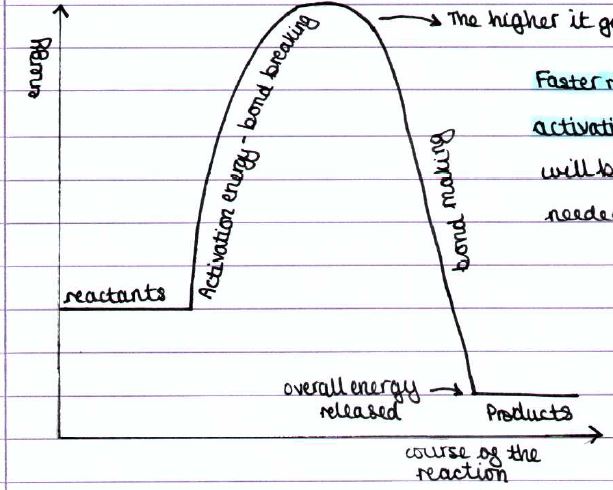 energy
The higher it
Faster
Activation energy - bond breaking
will
bond making
reactants
overall energy
released
Products
course of the
reaction